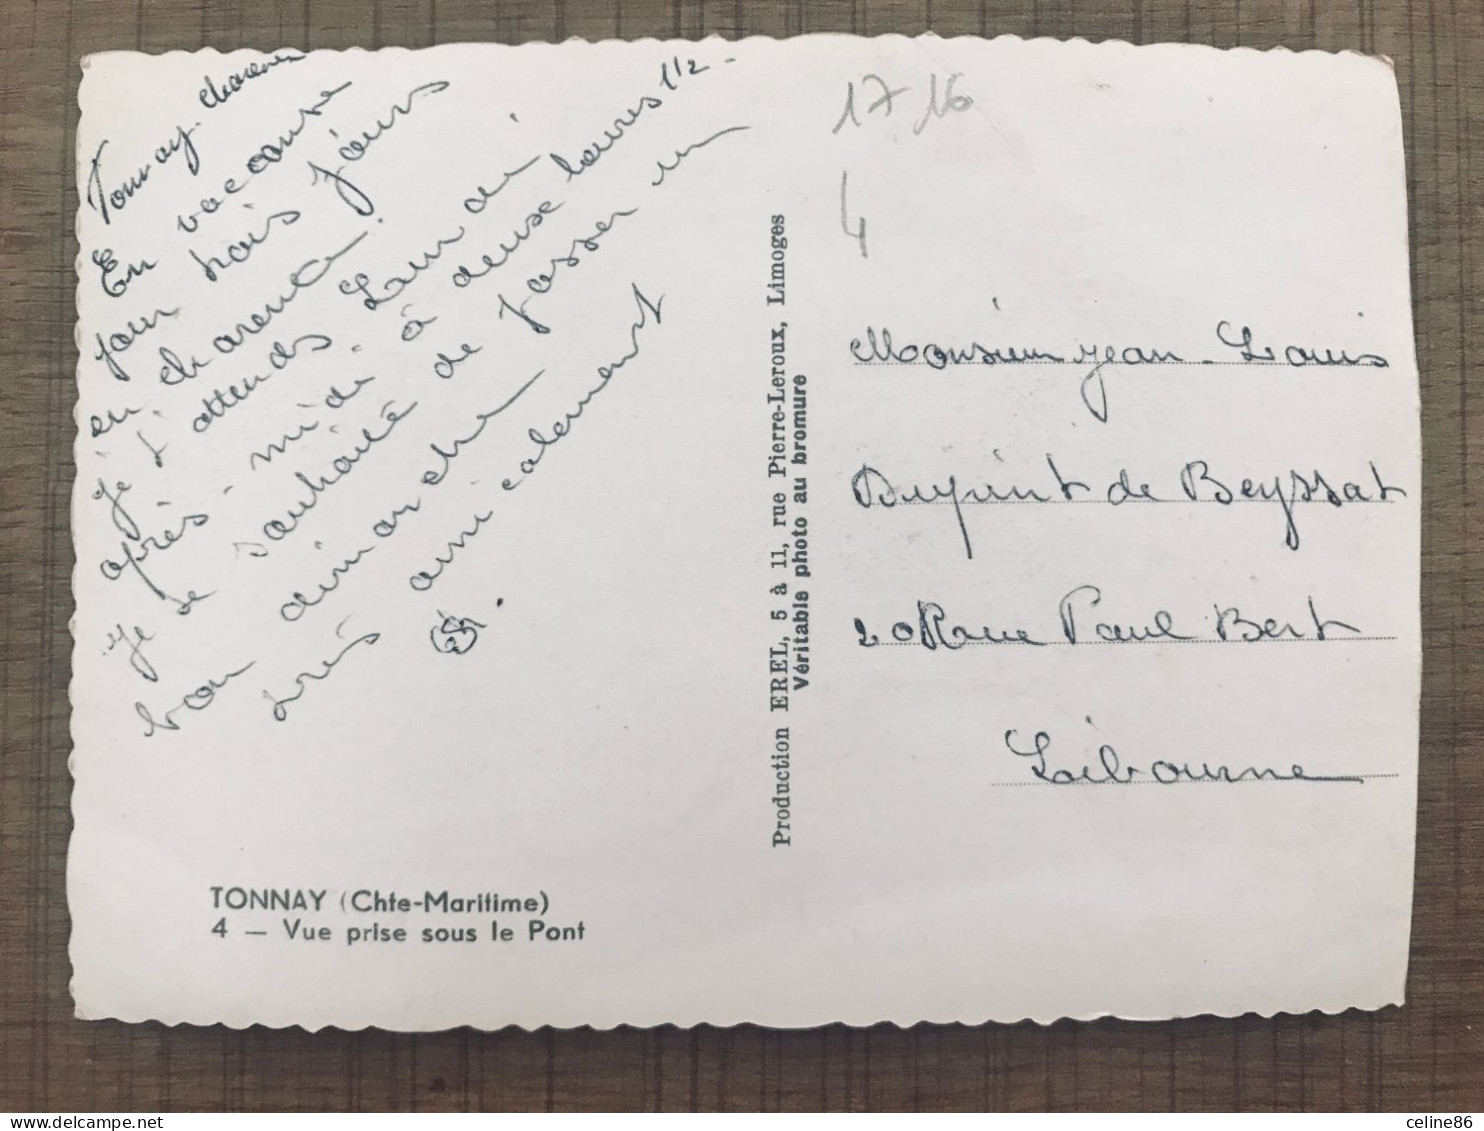 Tonnay-charente
En vacanse
pour trois jours
en charente!
je t'attends Lundi
après-midi à deuse heures 1/2 -
je te souhaite de passer un
bon dimanche
très amicalement
17 16
4
Monsieur jean-Louis
Dupint de Beyssat
20 Rue Paul Bert
Libourne
Production EREL, 5 à 11, rue Pierre-Leroux, Limoges
Véritable photo au bromure
TONNAY (Chte-Maritime)
4 — Vue prise sous le Pont
celine86